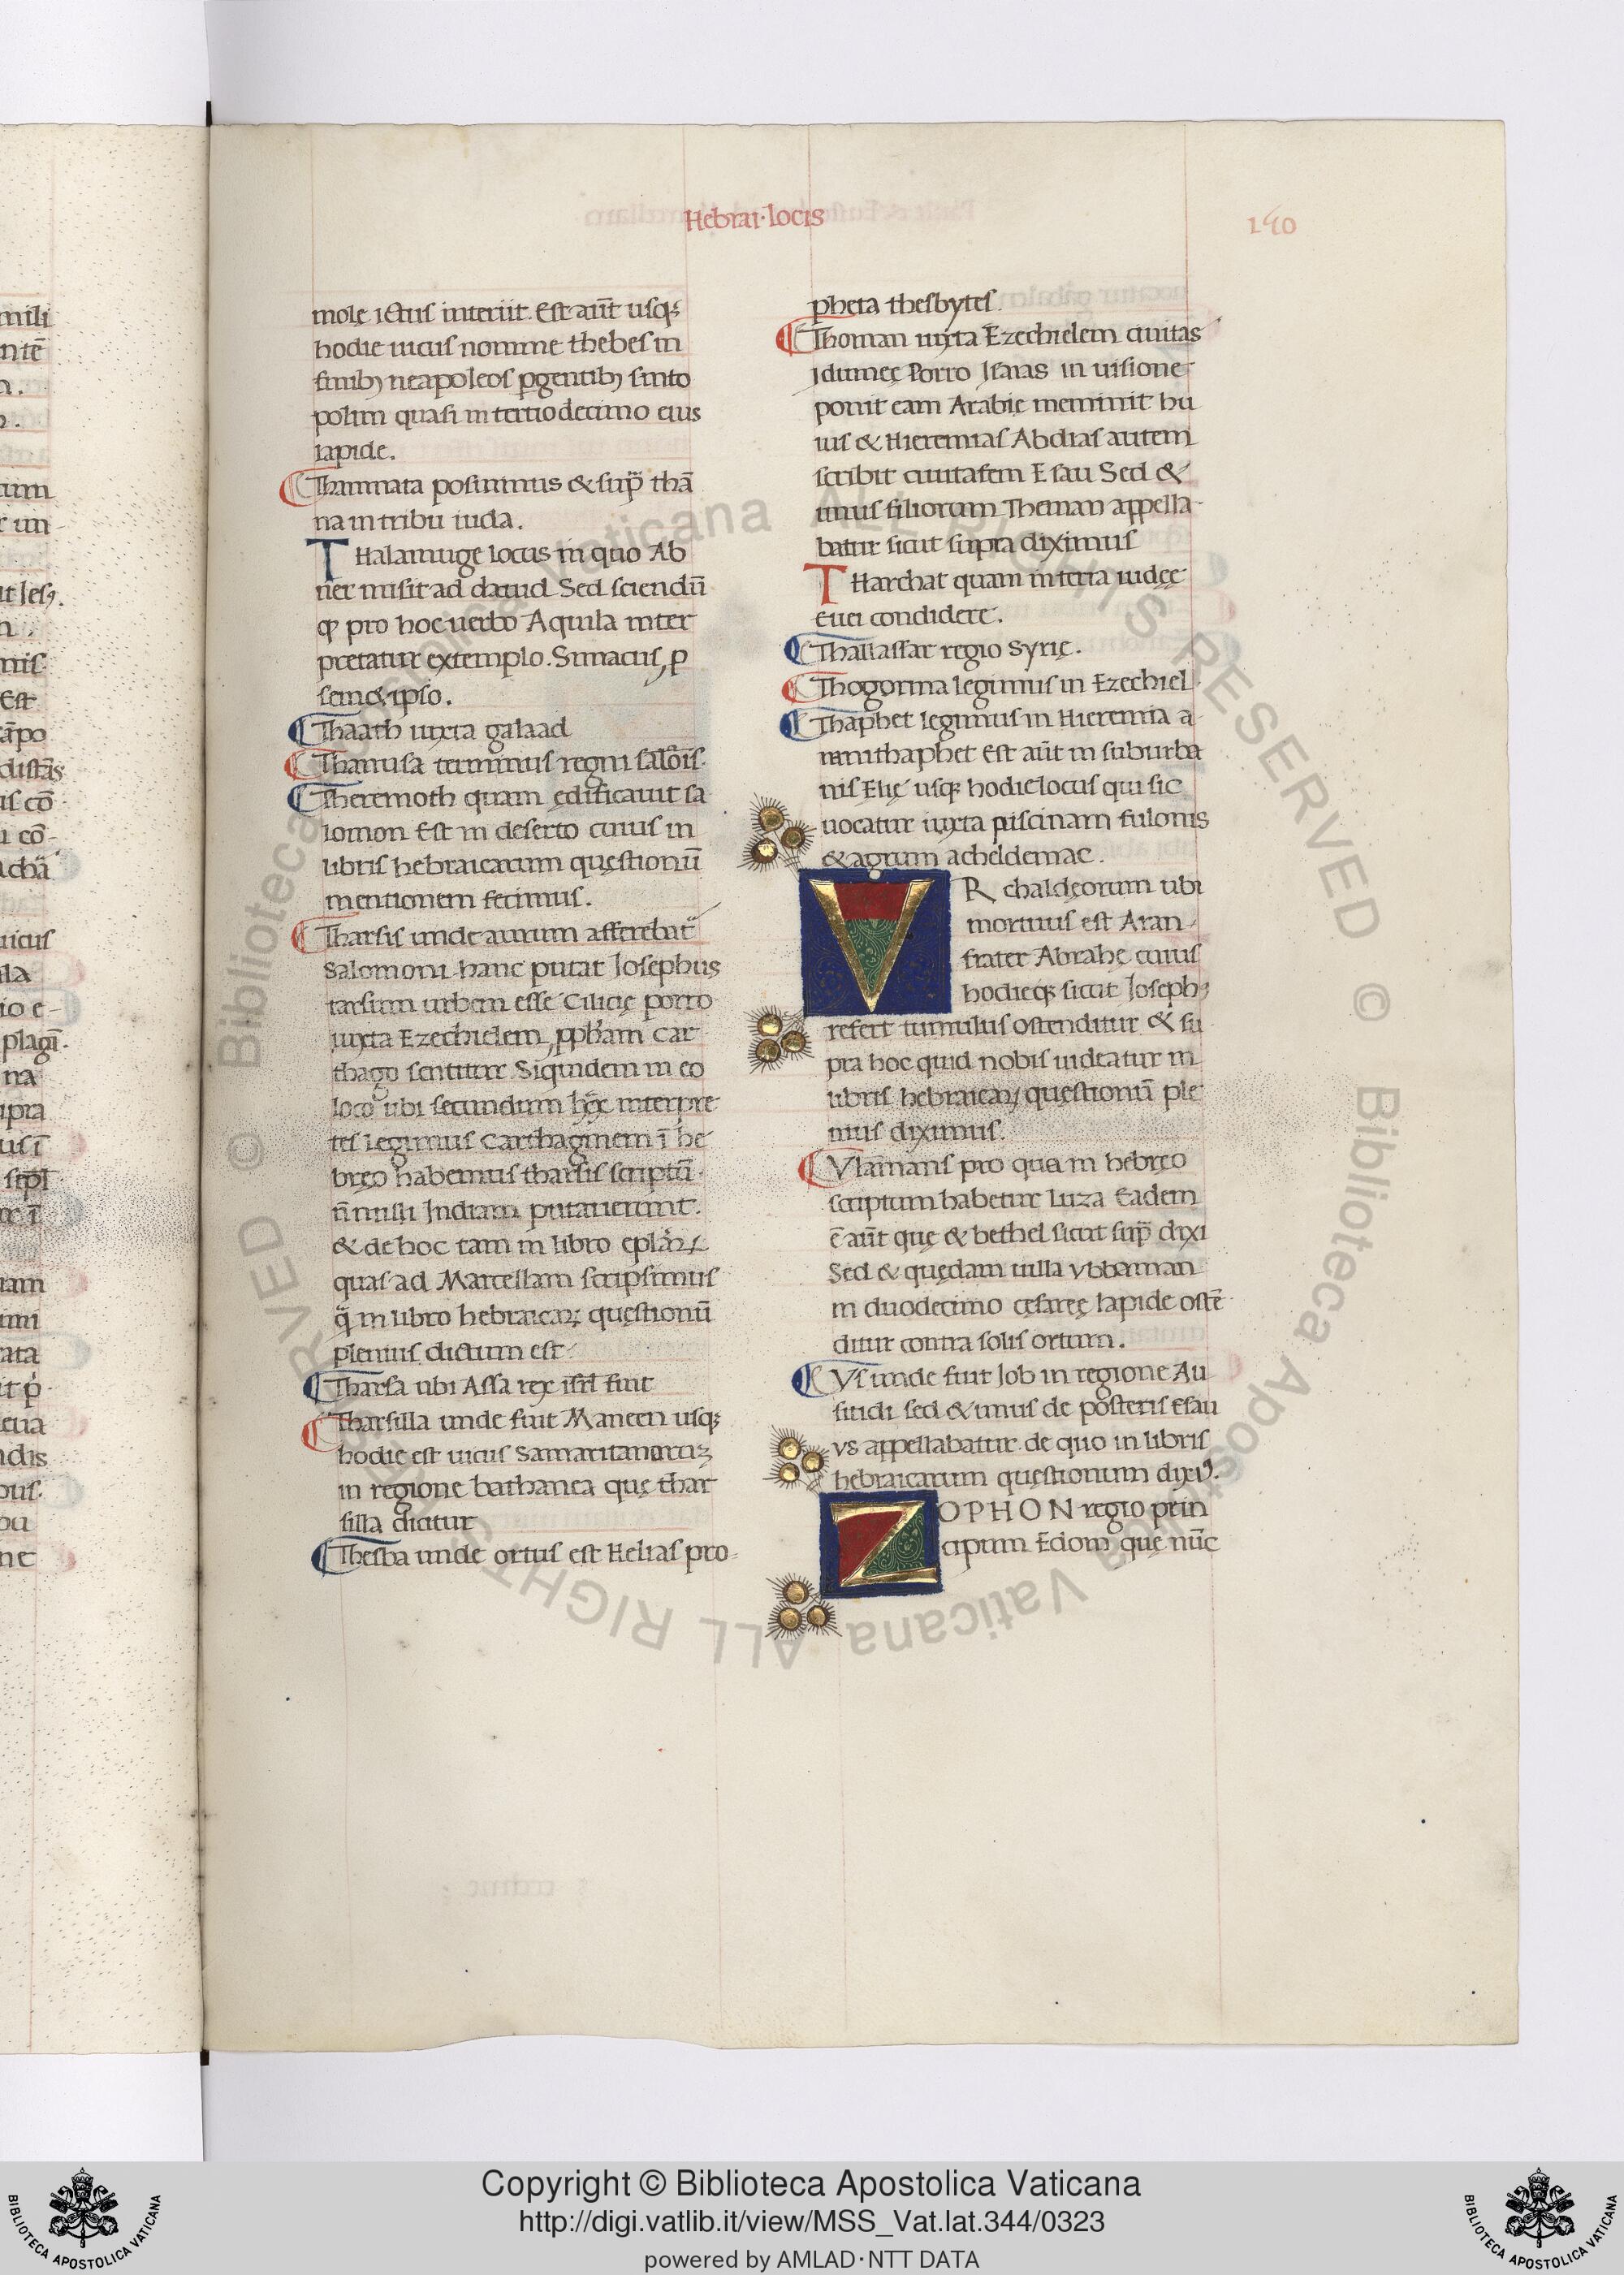 Hebrai·locis
140
molę ictus interiit. Est aūt usq;
hodie uicus nomine thebes in
finibꝫ neapoleos ꝑgentibꝫ sinto
polim quasi in tertiodecimo eius
lapide.
Thamnata posuimus & sup̄ thā
na in tribu iuda.
THalamuge locus in quo Ab
ner misit ad dauid Sed sciendū
ꝙ pro hoc uerbo Aquila inter
pretatur extemplo. Simacus, ꝓ
semetipso.
Thaath iuxta galaad
Thanusa terminus regni salōis.
Theremoth quam ędificauit sa
lomon Est in deserto cuius in
libris hebraicarum quęstionū
mentionem fecimus.
Tharsis unde aurum afferebat
Salomoni hanc putat Iosephus
tarsum urbem esse Cilicię porro
iuxta Ezechielem ꝓph̄am Car
thago sentitur Siquidem in eo
loco ubi secundum lxx interpre
tes legimus Carthaginem ī he
bręo habemus tharsis scriptū
ñnulli Indiam putauerunt.
& de hoc tam in libro eplārꝝ
quas ad Marcellam scripsimus
q̄ in libro hebraicaꝝ quęstionū
plenius dictum est
Tharsa ubi Assa rex isrl̄ fuit
Tharsilla unde fuit Maneen usq;
hodie est uicus Samaritanoruꝫ
in regione bathanea quę thar
silla dicitur
Thesba unde ortus est Helias pro-
pheta thesbytes
Thoman iuxta Ezechielem ciuitas
idumeę Porro Isaias in uisione
ponit eam Arabię meminit hu
ius & Hieremias Abdias autem
scribit ciuitatem Esau Sed &
unus filiorum Theman appella-
batur sicut supra diximus
THarchat quam in terra iudęe
Euei condidere.
Thallassar regio Syrię.
Thogorma legimus in Ezechiel
Thaphet legimus in Hieremia a
mnithaphet Est aūt in suburba
nis Elię usq; hodie locus qui sic
uocatur iuxta piscinam fulonis
& agrum acheldemac.
VR chaldęorum ubi
mortuus est Aran
frater Abrahę cuius
hodieq; sicut Iosephꝰ
refert tumulus ostenditur & su
pra hoc quid nobis uideatur in
libris hebraicaꝝ quęstionū ple
nius diximus.
Vlamans pro quam hebręo
scriptum habetur Luza Eadem
ē aūt quę & bethel sicut sup̄ dixi
Sed & quędam uilla vbbaman
in duodecimo cesareę lapide ostē
ditur contra solis ortum.
Vs unde fuit Iob in regione Au
sitidi sed & unus de posteris Esau
vs appellabatur de quo in libris
hebraicarum quęstionum dixi.
ZOPHON regio prin
cipum Edom quę nūc
Copyright © Biblioteca Apostolica Vaticana
http://digi.vatlib.it/view/MSS_Vat.lat.344/0323
powered by AMLAD·NTT DATA
BIBLIOTECA APOSTOLICA VATICANA
BIBLIOTECA APOSTOLICA VATICANA